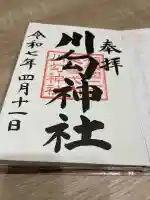 奉拝
川勾神社
令和七年四月十一日